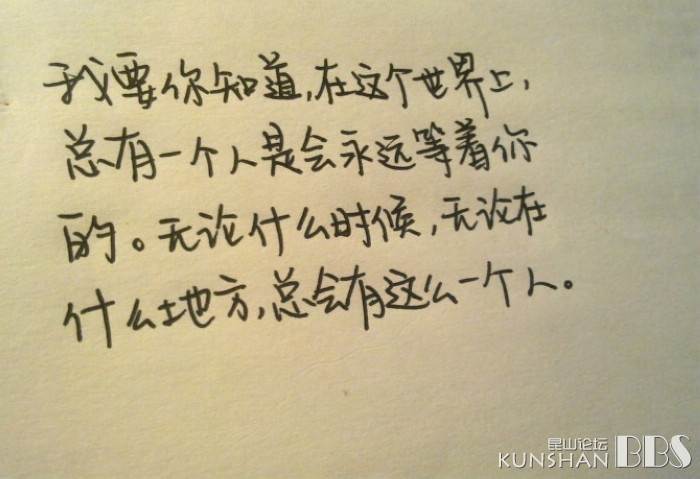 我要你知道,在这个世界上,
总有一个人是会永远等着你
的。无论什么时候,无论在
什么地方,总会有这么一个人。
昆山论坛
KUNSHAN BBS